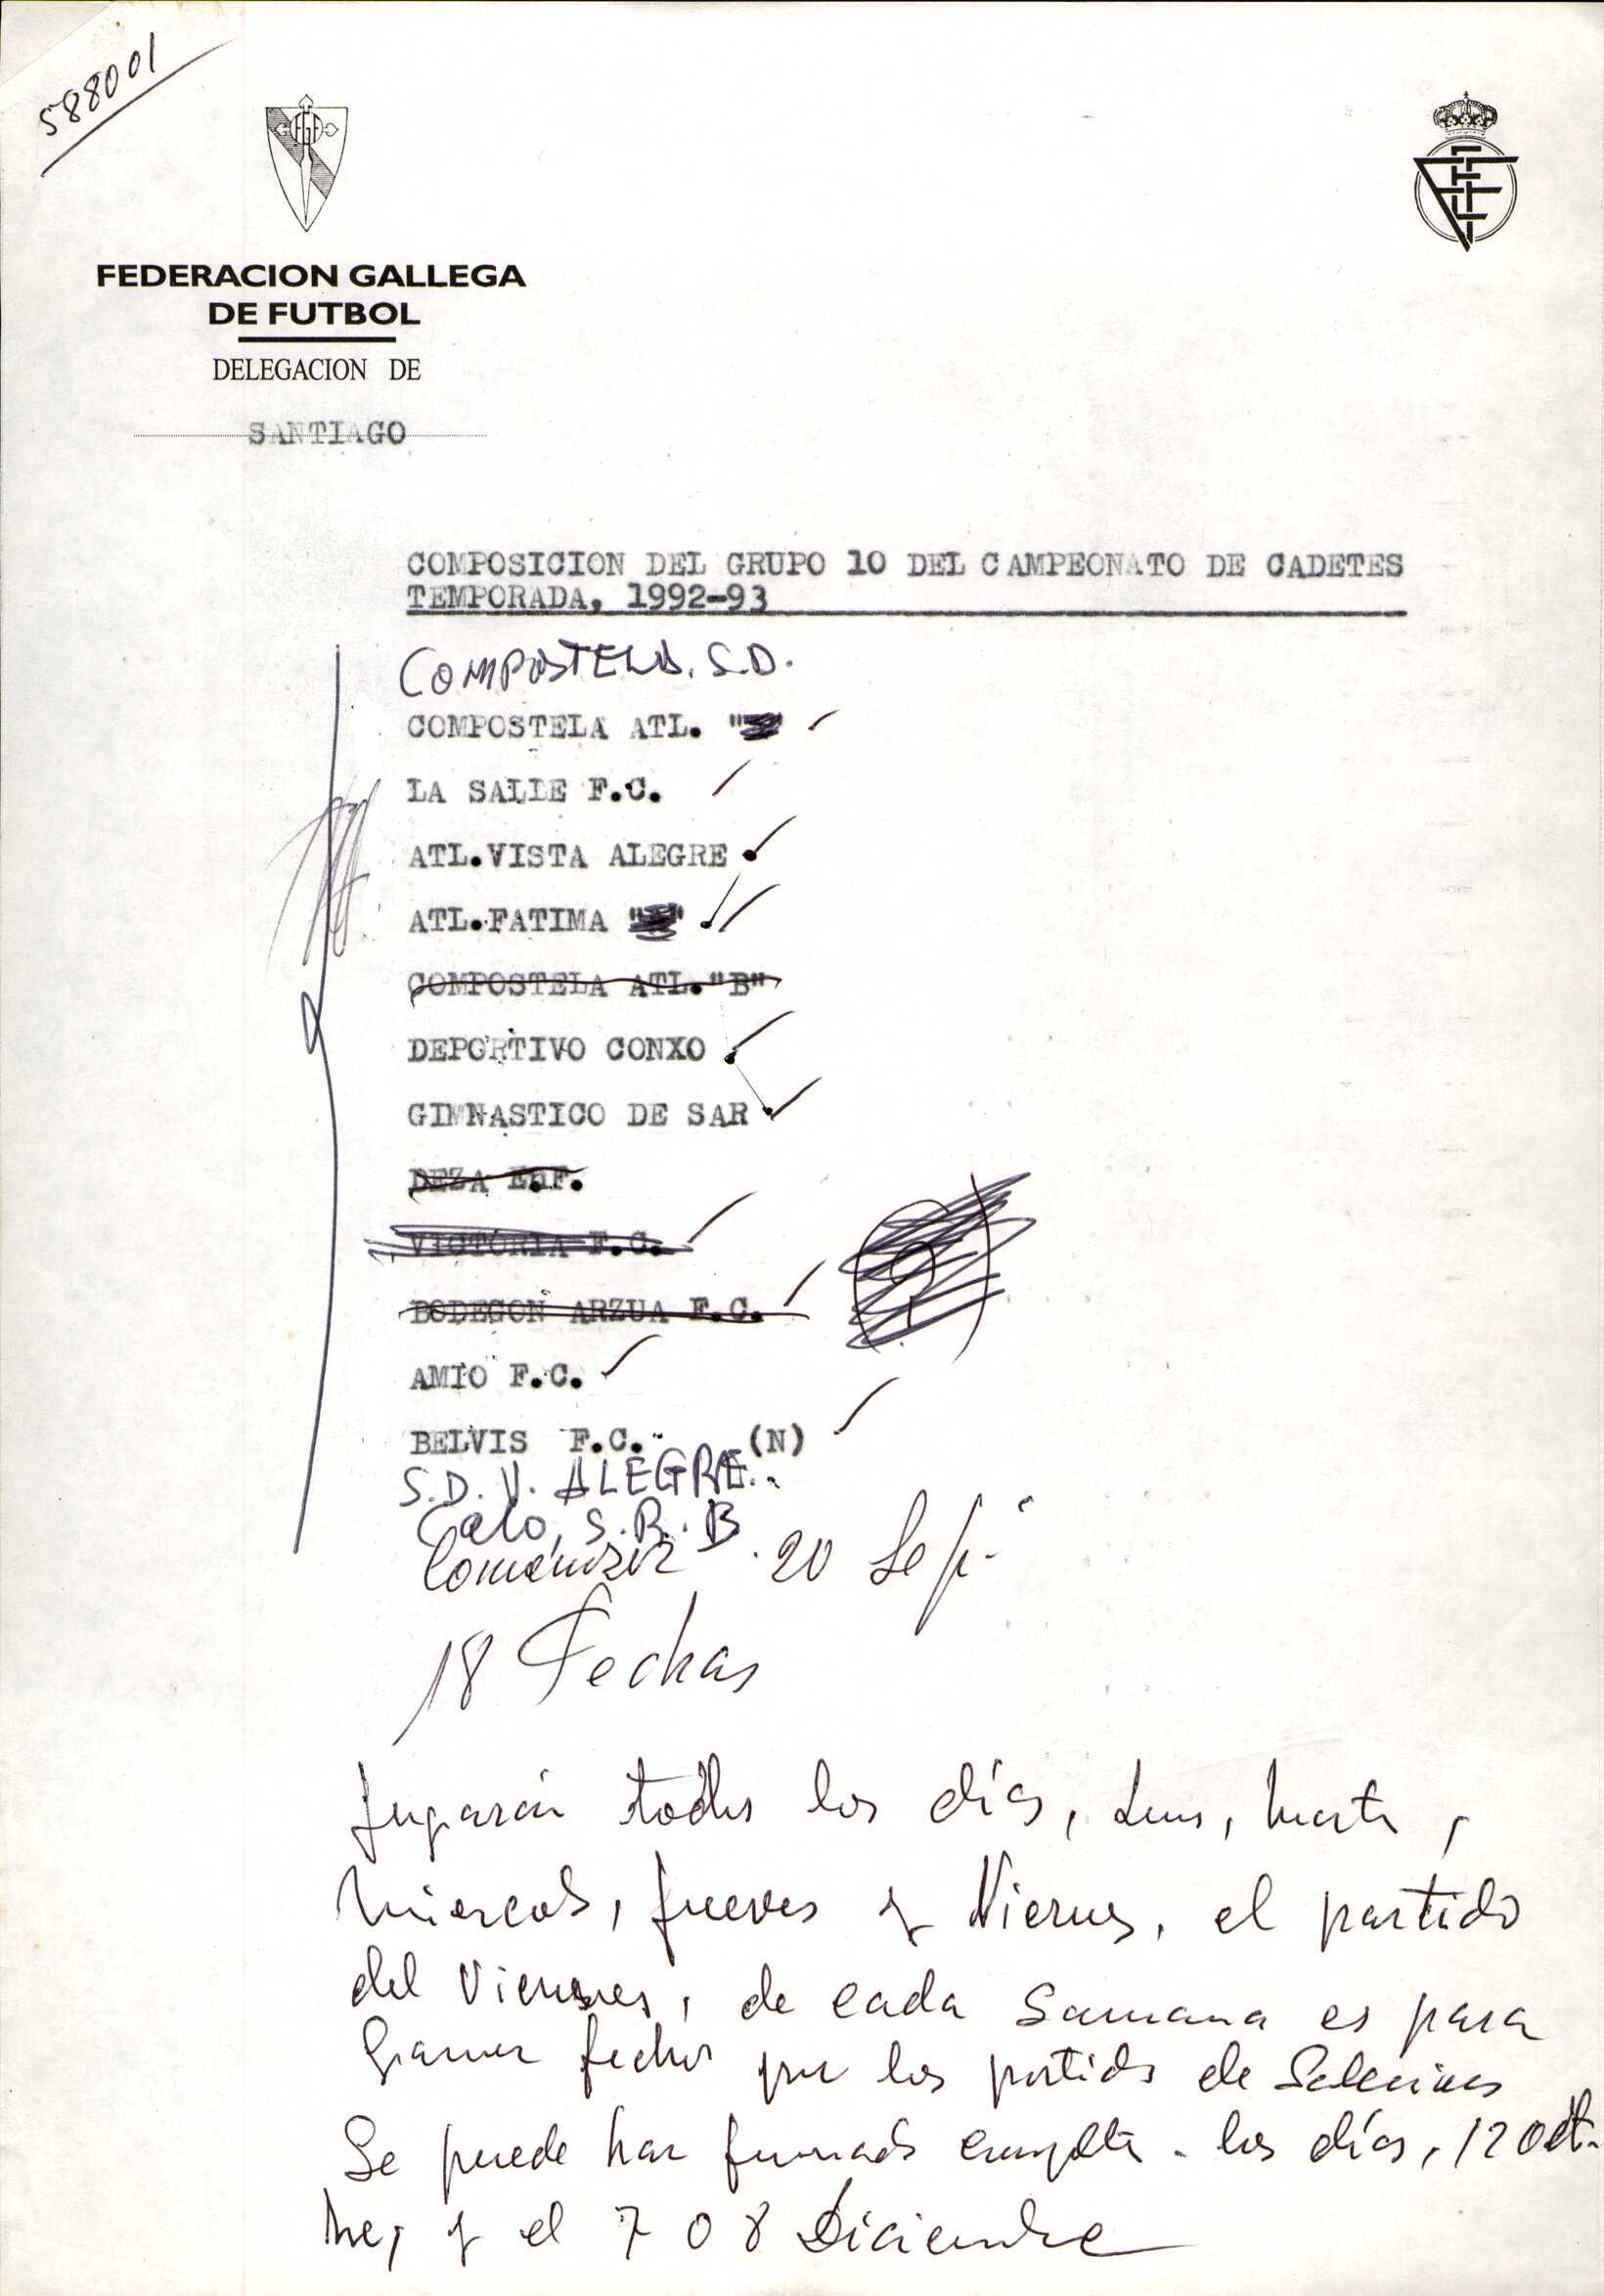 588001
FEDERACION GALLEGA
DE FUTBOL
DELEGACION DE
SANTIAGO
COMPOSICION DEL GRUPO 10 DEL CAMPEONATO DE CADETES
TEMPORADA, 1992-93
COMPOSTELA. S.D.
COMPOSTELA ATL.
LA SALLE F.C.
ATL.VISTA ALEGRE
ATL.FATIMA
COMPOSTELA ATL."B"
DEPORTIVO CONXO
GIMNASTICO DE SAR
DEZA E.F.
VICTORIA F.C.
BODEGON ARZUA F.C.
AMIO F.C.
BELVIS F.C. (N)
S.D. V. ALEGRE.
Calo, S.R. B
Comenzar 20 Sep.
18 Fechas
Jugarán todos los días,
Jueves y Viernes, el partido
del Viernes, de cada Semana es para
Ganar fechas por los partidos de Selecciones
Se puede los días, 12 Oct.
y el 7 o 8 Diciembre